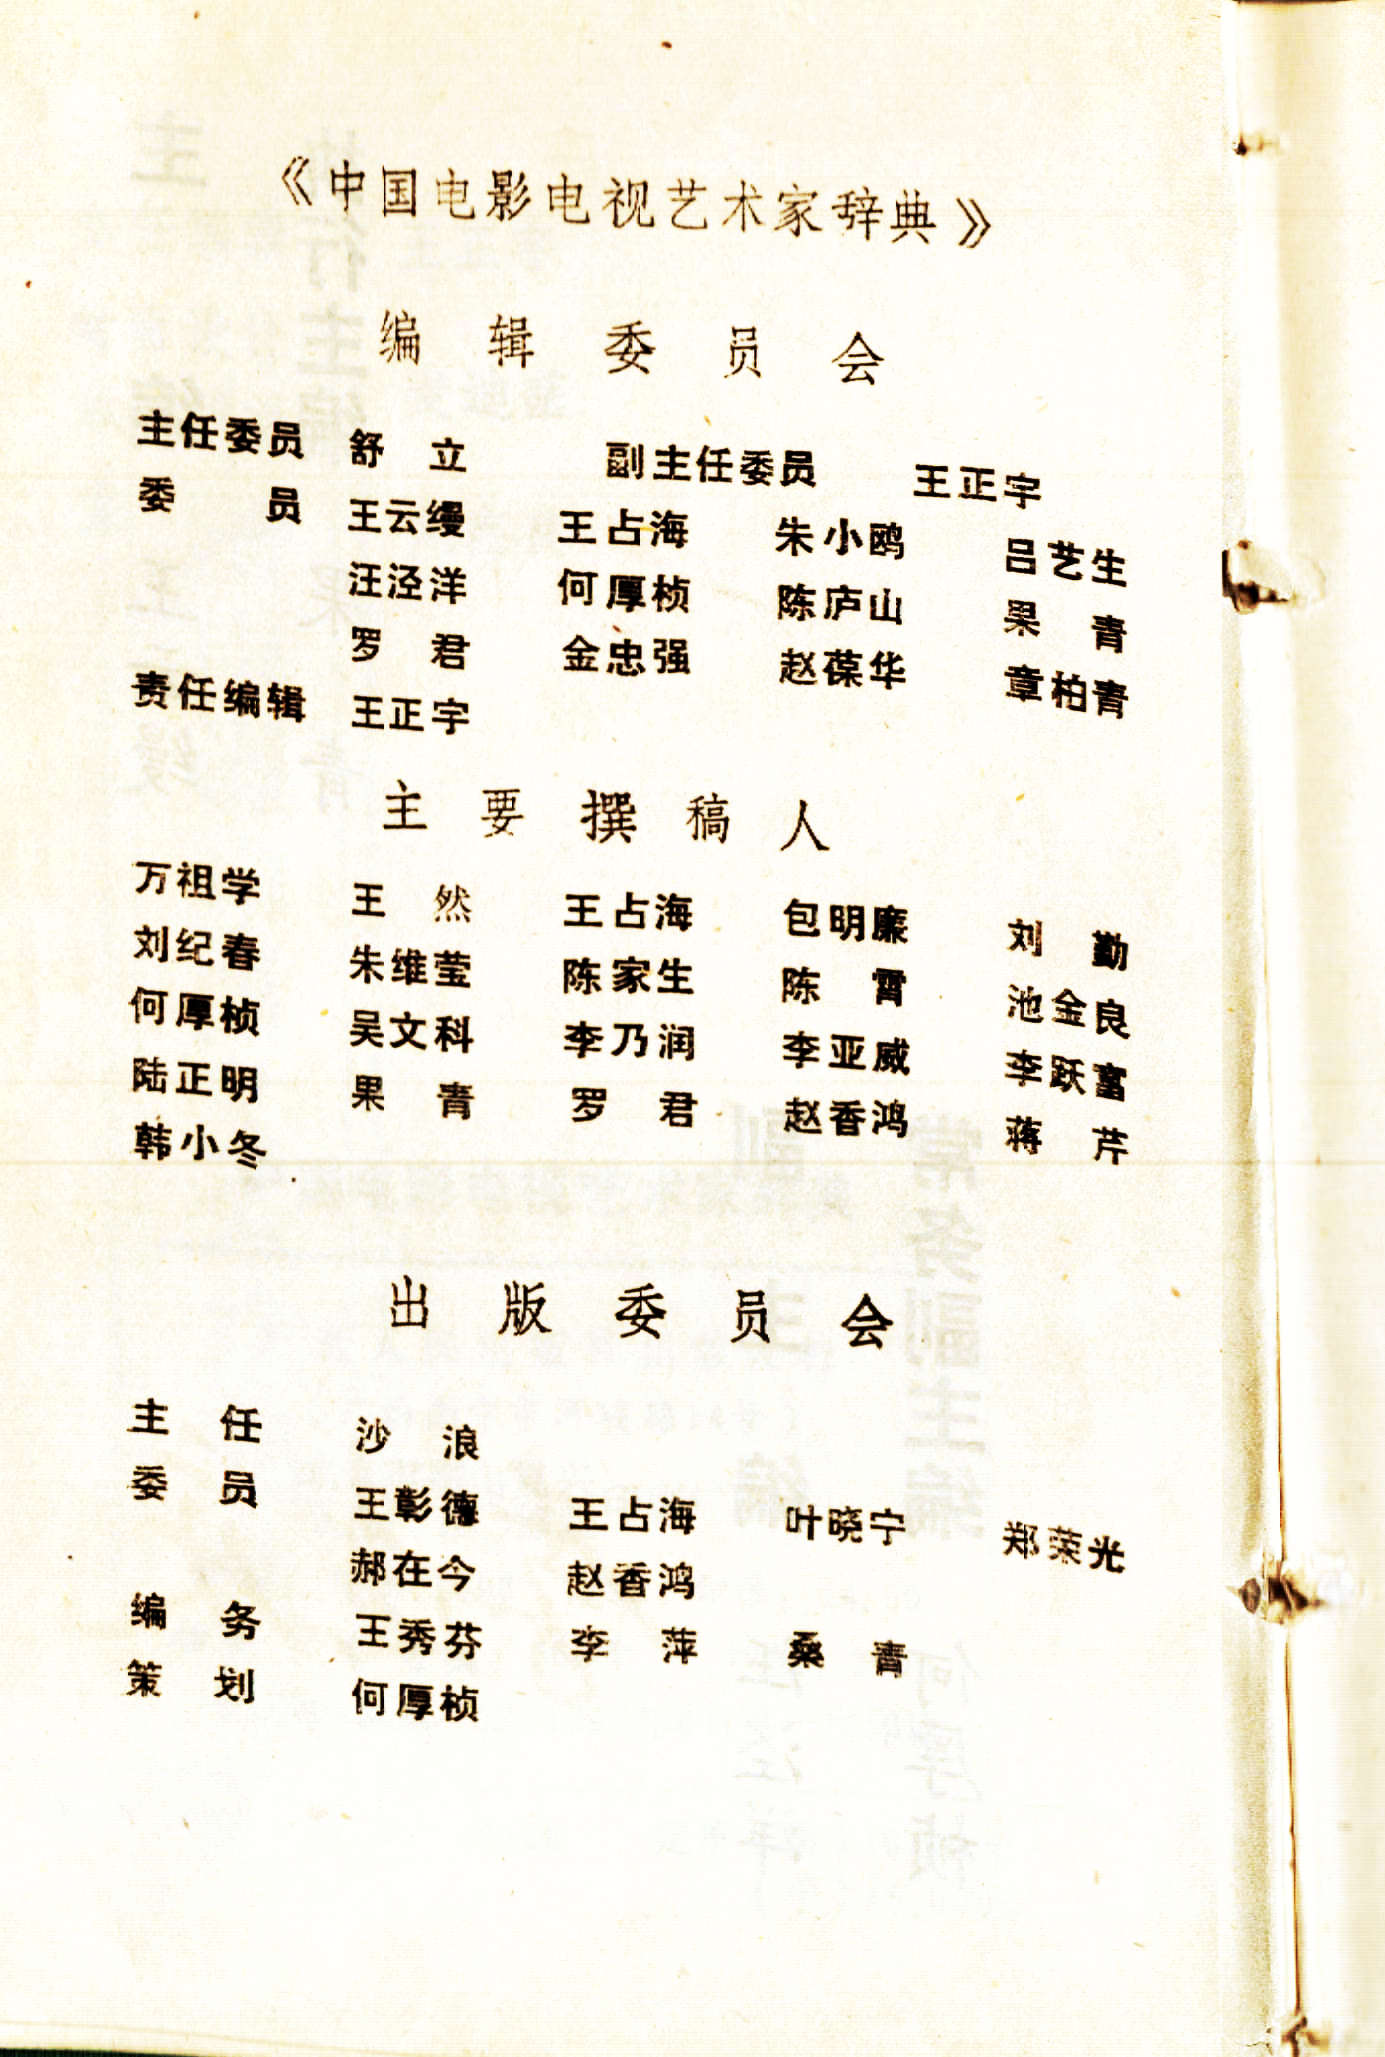 《中国电影电视艺术家辞典》
编辑委员会
主任委员 舒立 副主任委员 王正宇
委员 王云缦 王占海 朱小鸥 吕艺生
汪泾洋 何厚桢 陈庐山 果青
罗君 金忠强 赵葆华 章柏青
责任编辑 王正宇
主要撰稿人
万祖学 王然 王占海 包明廉 刘勤
刘纪春 朱维莹 陈家生 陈霄 池金良
何厚桢 吴文科 李乃润 李亚威 李跃富
陆正明 果青 罗君 赵香鸿 蒋芹
韩小冬
出版委员会
主任 沙浪
委员 王彰德 王占海 叶晓宁 郑荣光
郝在今 赵香鸿
编务 王秀芬 李萍 桑青
策划 何厚桢